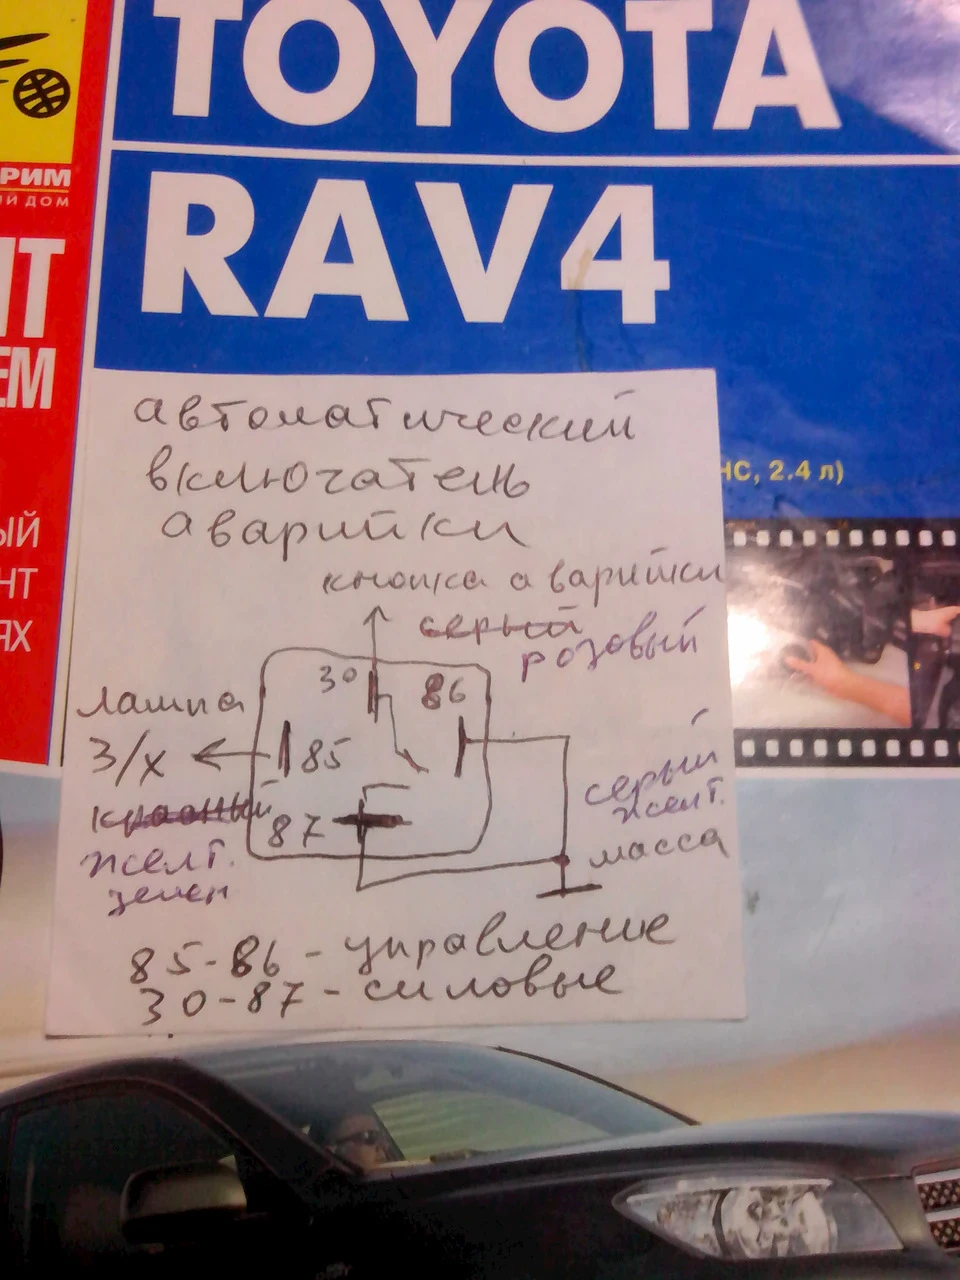 TOYOTA
RAV4
РИМ
ЫЙ ДОМ
НТ
ЕМ
ЫЙ
НТ
ЯХ
НС, 2.4 л)
автоматический
включатель
аварийки
кнопка аварийки
серый
розовый
30
86
лампа
З/Х
85
красный
87
желт.
зелен
серый
желт.
масса
85-86 - управление
30-87 - силовые